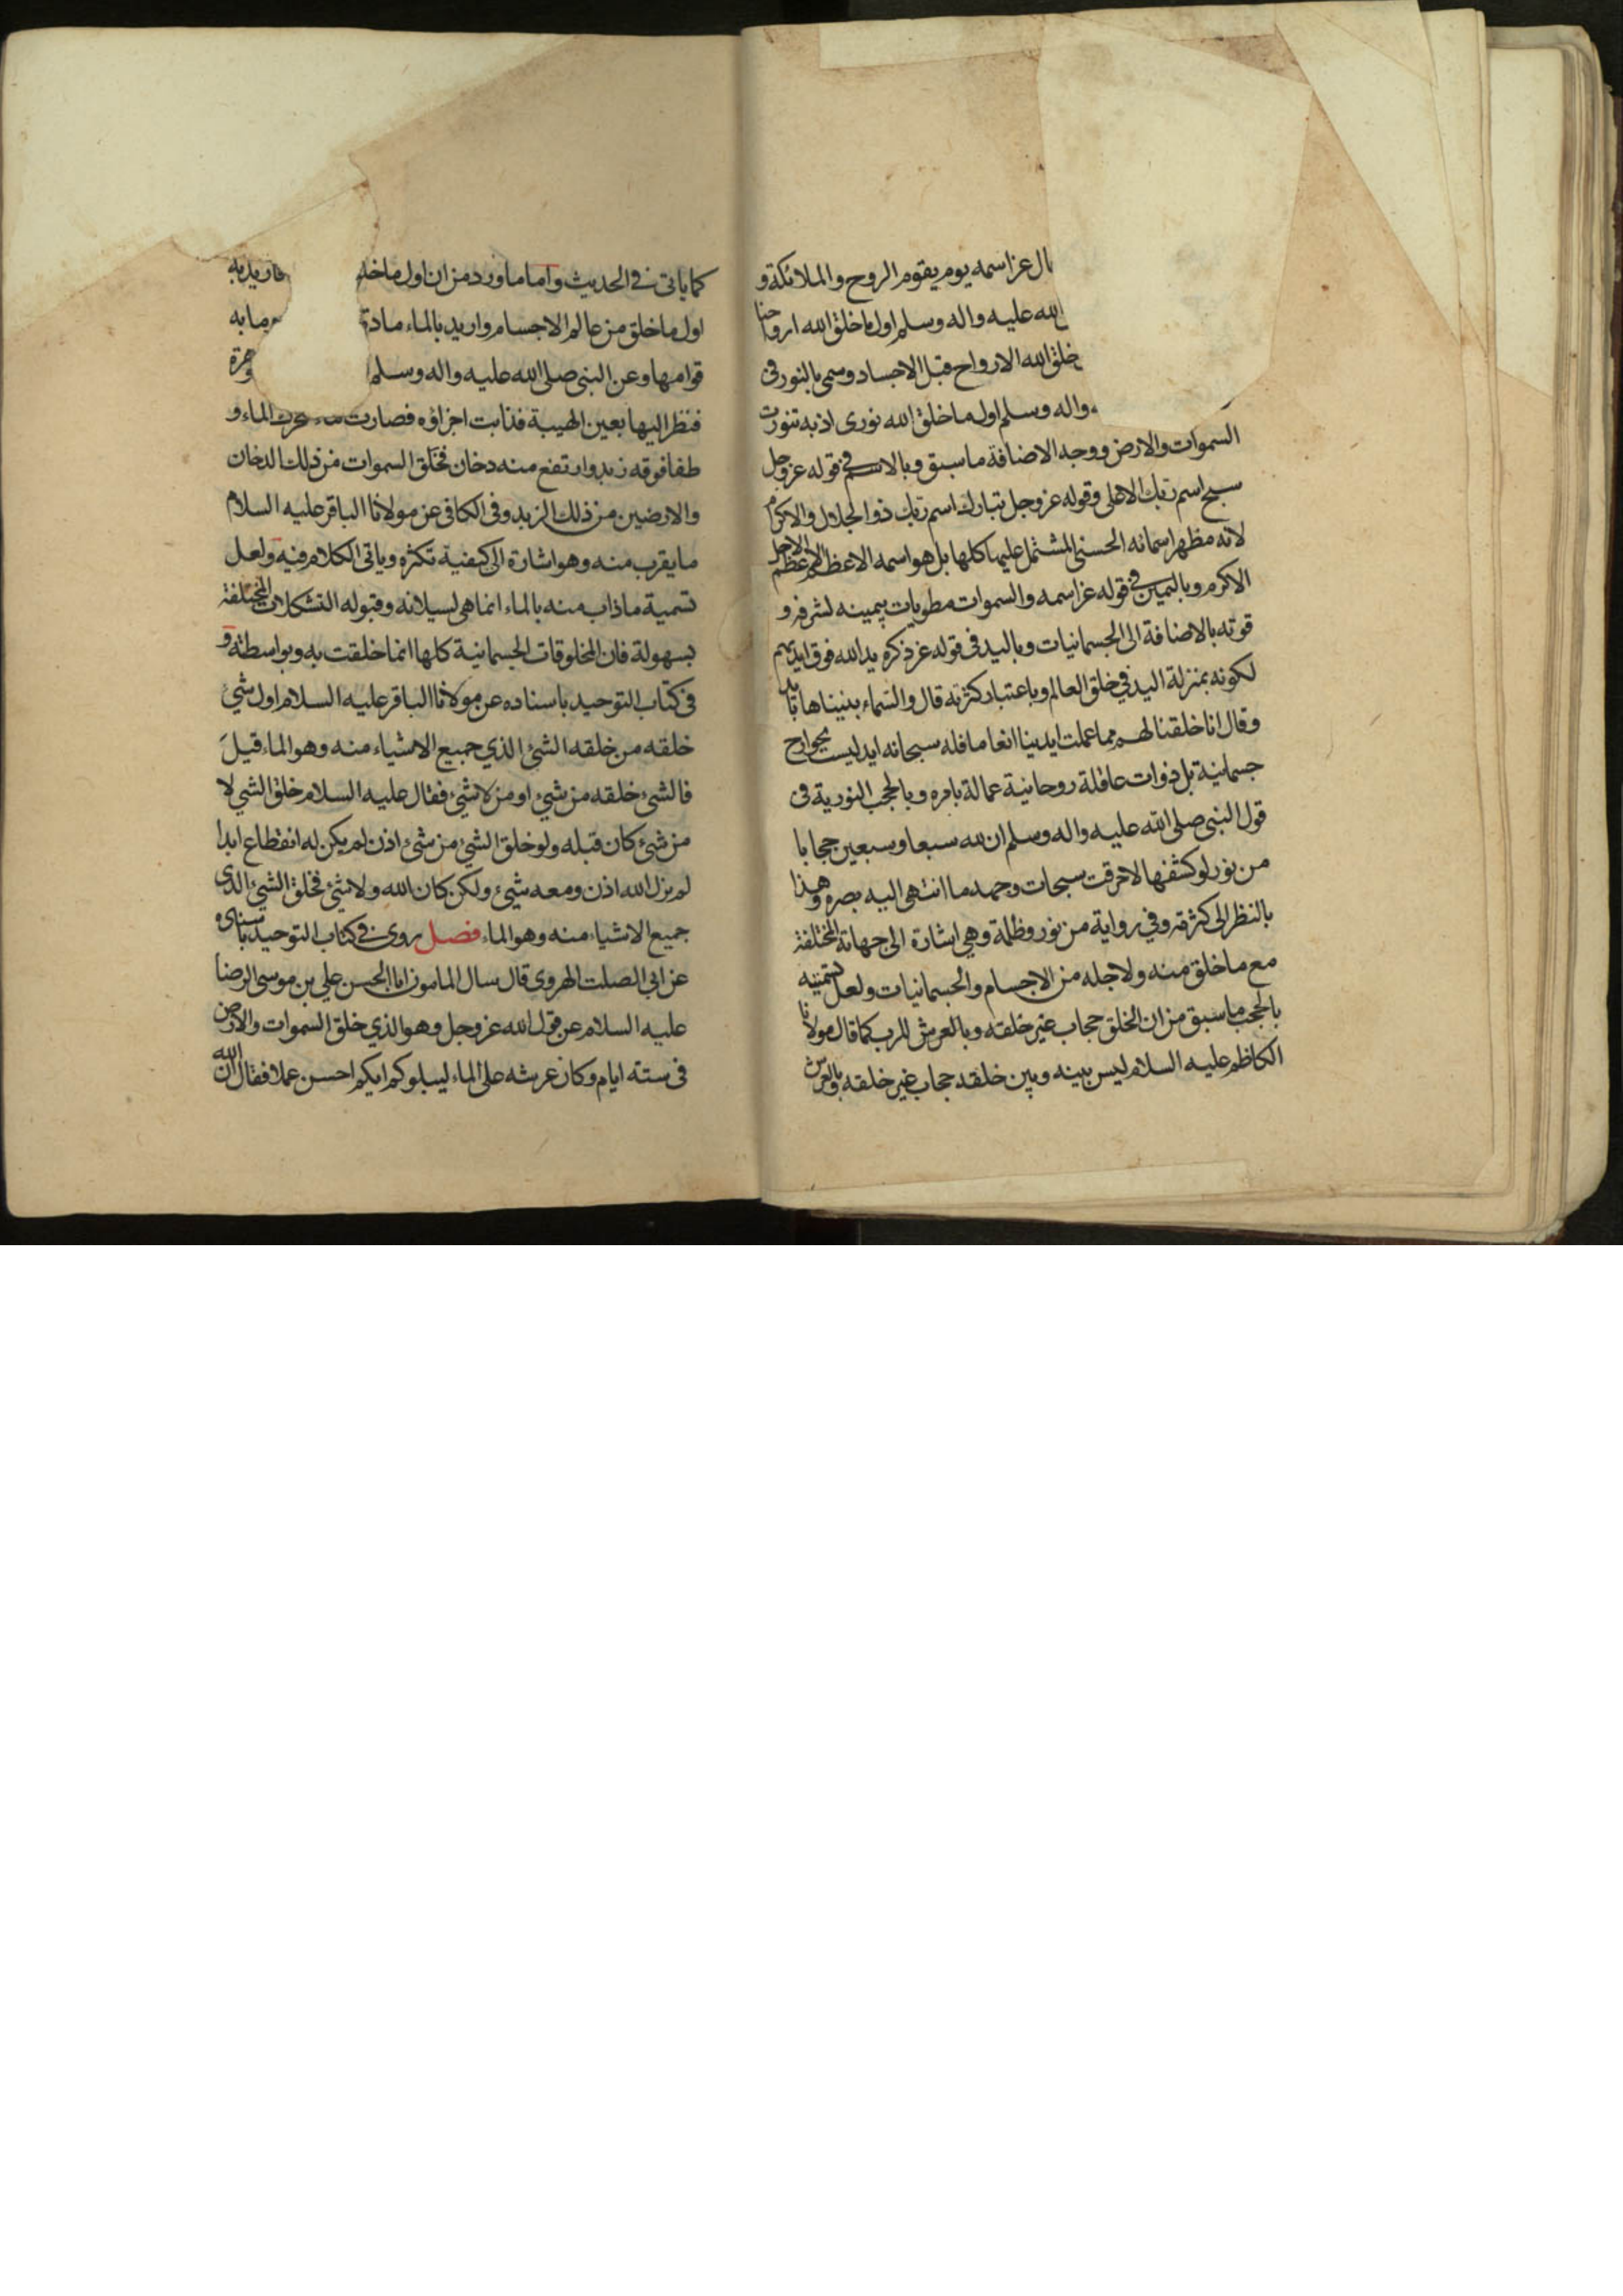 ال عز اسمه يوم يقوم الروح والملائكة و
الله عليه واله وسلم اول ما خلق الله اروحنا
خلق الله الارواح قبل الاجساد وسمى بالنور فى
واله وسلم اول ما خلق الله نورى اذ به تنورت
السموات والارض ووجه الاضافة ما سبق وبالاسم في قوله عز وجل
سبح اسم ربك الاعلى وقوله عز وجل تبارك اسم ربك ذو الجلال والاكرام
لانه مظهر اسمائه الحسنى المشتمل عليها كلها بل هو اسمه الاعظم الاعظم الاجل
الاكرم وباليمين في قوله عز اسمه والسموات مطويات بيمينه لشرفه و
قوته بالاضافة الى الجسمانيات وباليد فى قوله عز ذكره يد الله فوق ايديهم
لكونه بمنزلة اليد في خلق العالم وباعتبار كثرته قال والسماء بنيناها بايد
وقال انا خلقنا لهم مما عملت ايدينا انعاما فله سبحانه ايد ليست بجوارح
جسمانية بل ذوات عاقلة روحانية عمالة بامره وبالحجب النورية فى
قول النبى صلى الله عليه واله وسلم ان لله سبعا وسبعين حجابا
من نور لو كشفها لاحرقت سبحات وجهه ما انتهى اليه بصره وهذا
بالنظر الى كثرته وفي رواية من نور وظلمة وهي اشارة الى جهاته المختلفة
مع ما خلق منه ولاجله من الاجسام والجسمانيات ولعل تسميته
بالحجب ما سبق من ان الخلق حجاب غير خلقه وبالعرش للرب كما قال مولانا
الكاظم عليه السلام ليس بينه وبين خلقه حجاب غير خلقه وبالعرش
كما ياتى فى الحديث واما ما ورد من ان اول ما خلق فاريد به
اول ما خلق من عالم الاجسام واريد بالماء مادة ما به
قوامها وعن النبى صلى الله عليه واله وسلم
فنظر اليها بعين الهيبة فذابت اجزاؤه فصارت ماء فتحرك الماء و
طفا فوقه زبد وارتفع منه دخان فخلق السموات من ذلك الدخان
والارضين من ذلك الزبد وفى الكافى عن مولانا الباقر عليه السلام
ما يقرب منه وهو اشارة الى كيفية تكثره وياتى الكلام فيه ولعل
تسمية ما ذاب منه بالماء انما هى لسيلانه وقبوله التشكلات المختلفة
بسهولة فان المخلوقات الجسمانية كلها انما خلقت به وبواسطته و
فى كتاب التوحيد باسناده عن مولانا الباقر عليه السلام اول شي
خلقه من خلقه الشئ الذي جميع الاشياء منه وهو الماء قيل
فالشئ خلقه من شئ او من لا شئ فقال عليه السلام خلق الشي لا
من شئ كان قبله ولو خلق الشئ من شئ اذن لم يكن له انقطاع ابدا
لم يزل الله اذن ومعه شئ ولكن كان الله ولا شئ فخلق الشئ الذى
جميع الاشياء منه وهو الماء فصل روى فى كتاب التوحيد باسناده
عن ابى الصلت الهروى قال سال المامون ابا الحسن علي بن موسى الرضا
عليه السلام عن قول الله عز وجل وهو الذي خلق السموات والارض
فى ستة ايام وكان عرشه على الماء ليبلوكم ايكم احسن عملا فقال ان الله